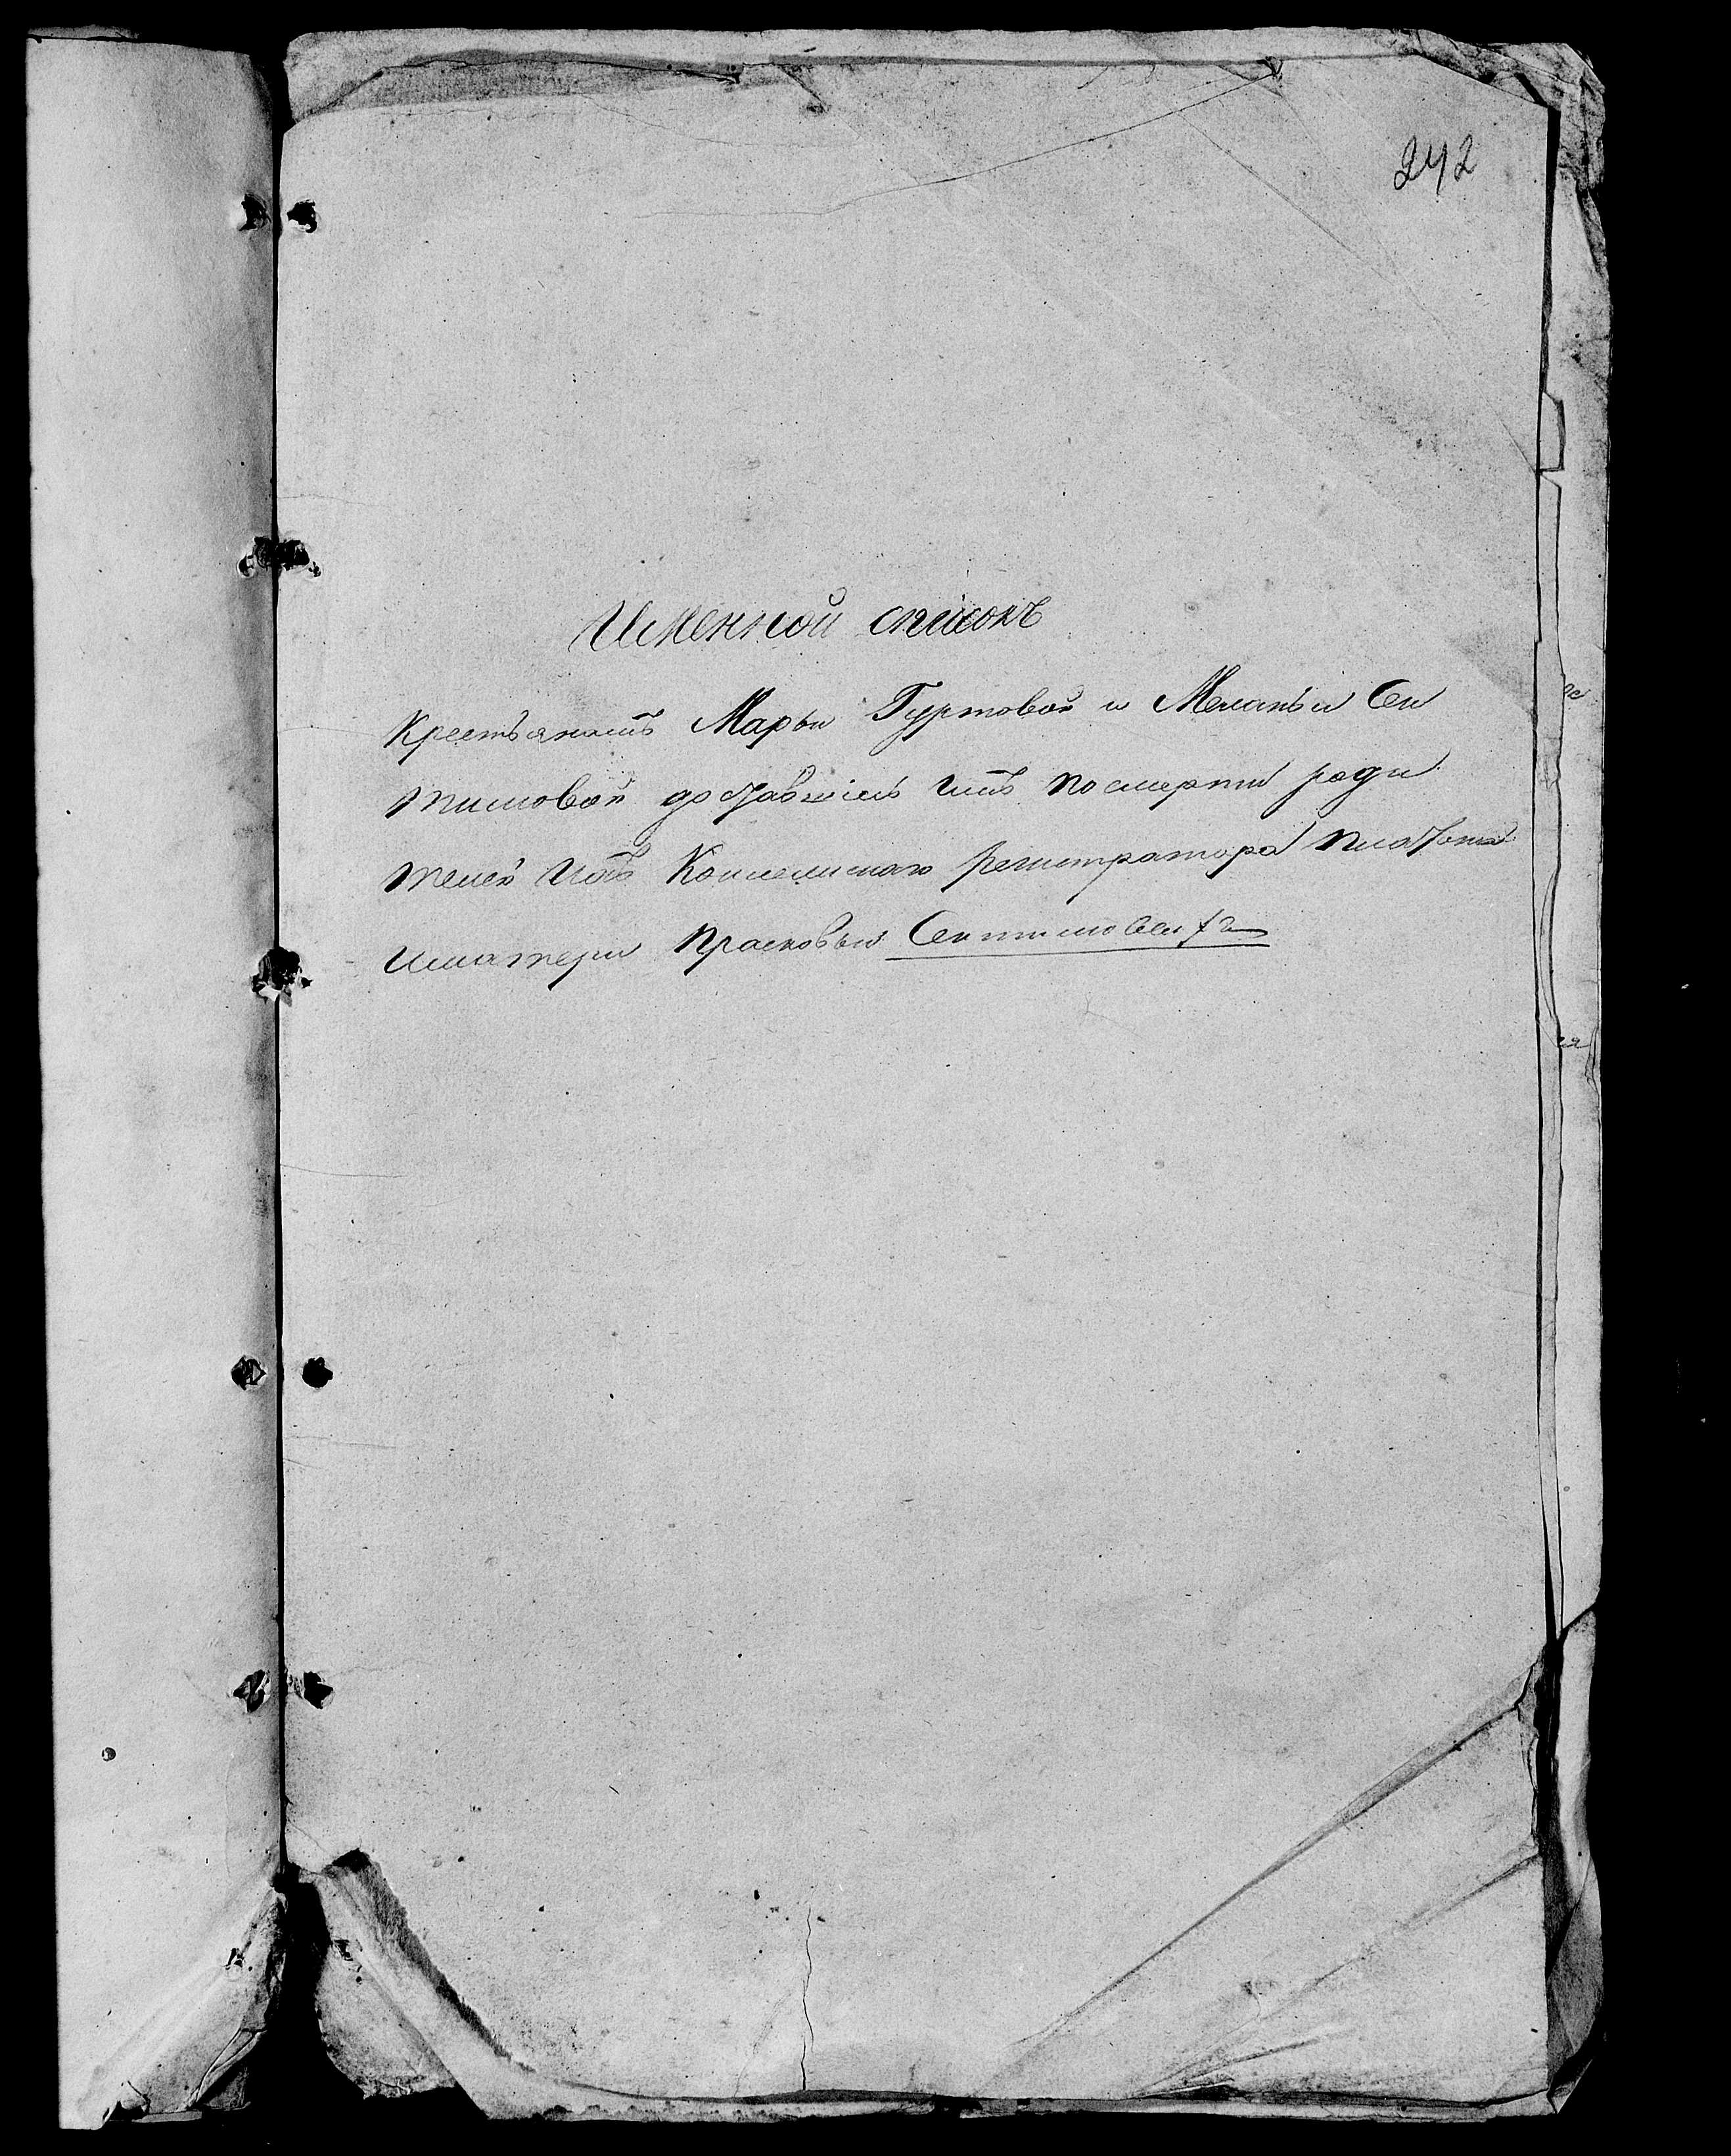 242
Именной списокъ
Крестьянамъ Марьи Гуртовой и Меланьи Сеп
тимовой доставшимъ имъ посмерти роди
телей ихъ Коллежскаго регистратора Платона
иматери Прасковьи